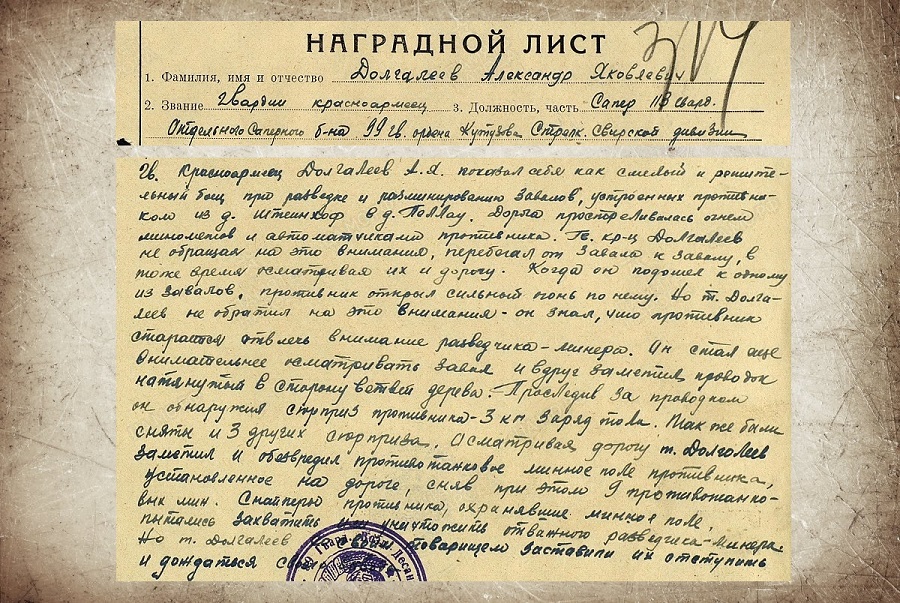 НАГРАДНОЙ ЛИСТ
1. Фамилия, имя и отчество Долгалеев Александр Яковлевич
2. Звание Гвардии красноармеец 3. Должность, часть Сапер 113 гвард.
Отдельного Саперного б-на 99 гв. ордена Кутузова Стрелк. Свирской дивизии
Гв. Красноармеец Долгалеев А.Я. показал себя как смелый и решите-
льный боец при разведке и разминированию завалов, устроенных противни-
ком из д. Штейнхоф в д. Поллау. Дорога простреливалась огнем
минометов и автоматчиками противника. Гв. кр-ц Долгалеев
не обращая на это внимания, перебегал от завала к завалу, в
тоже время осматривая их и дорогу. Когда он подошел к одному
из завалов, противник открыл сильный огонь по нему. Но т. Долга-
леев не обратил на это внимания - он знал, что противник
старается отвлечь внимание разведчика-минера. Он стал еще
внимательнее осматривать завал и вдруг заметил проводок
натянутый в сторону ветвей дерева. Проследив за проводком
он обнаружил сюрприз противника - 3 кг заряд тола. Так же были
сняты и 3 других сюрприза. Осматривая дорогу т. Долгалеев
заметил и обезвредил противотанковое минное поле противника,
установленное на дороге, сняв при этом 9 противотанко-
вых мин. Снайперы противника, охранявшие минное поле,
пытались захватить или уничтожить отважного разведчика-минера.
Но т. Долгалеев товарищем заставили их отступить
и дождаться